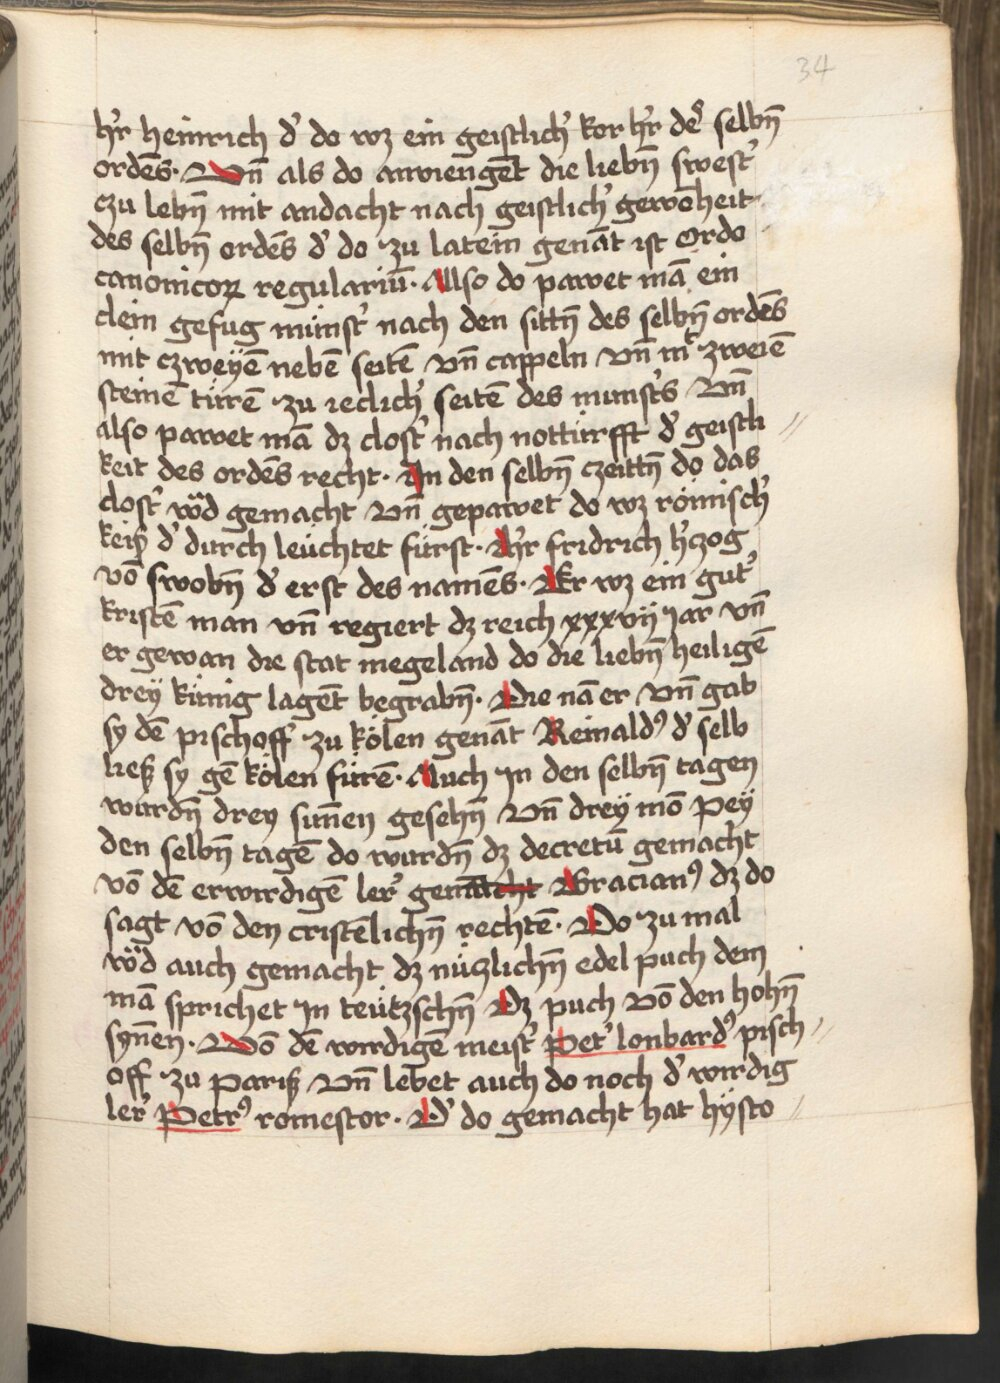 34
hr̄ heinrich d' do wz ein geistlich' kor hr̄ des selbn̄
ordēs. Vn̄ als do anviengēt die liebn̄ swest'
czu lebn̄ mit andacht nach geistlich' gewōheit
des selbn̄ ordēs d' do zu latein genāt ist Ordo
canonicoꝝ regulariū. Allso do pawet mā ein
clein gefug münst' nach den sittn̄ des selbn̄ ordēs
mit czweyē nebē seitē vn̄ cappeln vn̄ mt zweiē
steinē türē zu ieclich' seitē des munst's Vn̄
also pawet mā dz clost' nach notturfft d' geistli //
keit des ordēs recht. In den selbn̄ czeittn̄ do das
clost' wörd gemacht Vn̄ gepawet do wz römisch'
keiß d' durch leüchtet fürst. Hr̄ fridrich h'czog
vō swobn̄ d' erst des namēs. Er wz ein gut'
kristē man vn̄ regiert dz reich xxxvij jar vn̄
er gewan die stat megeland do die liebn̄ heiligē
drey künig lagēt begrabn̄. Die nā er vn̄ gab
sy dē pischoff zu kölen genāt Reinald9 d' selb
ließ sy gē kölen fürē. Auch in den selbn̄ tagen
wurdn̄ drey sūnen gesehn̄ Vn̄ drey mō pey
den selbn̄ tagē do wurdn̄ dz decretū gemacht
vō dē erwirdigē ler' genāt Gracian9 dz do
sagt vō den cristēlichn̄ rechtē. Do zu mal
wörd auch gemacht dz nützlichn̄ edel puch dem
mā sprichet in teützschn̄ Dz puch vō den hohn̄
syn̄en. Vō dē wirdigē meist' Pet' lonbard9 pisch //
off zu pariß Vn̄ lebet auch do noch d' wirdig
ler' Petr9 comestor. D' do gemacht hat hÿsto //